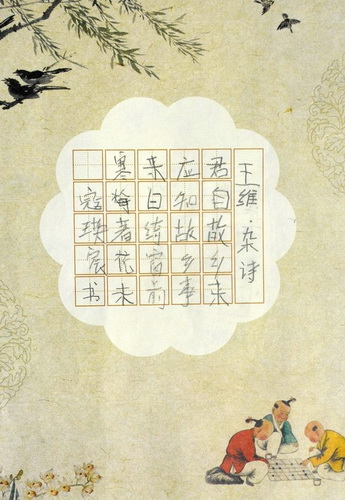 王维·杂诗
君自故乡来
应知故乡事
来日绮窗前
寒梅著花未
寇琪宸书